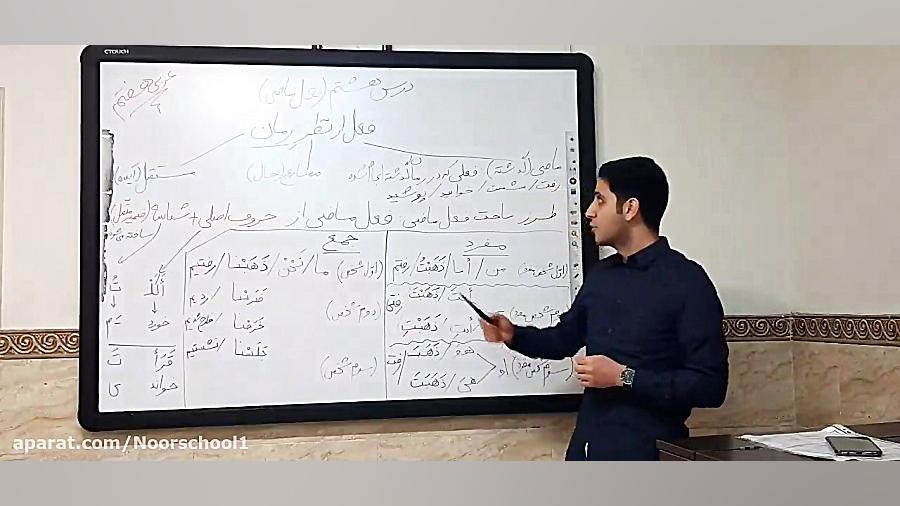 CTOUCH
درس هشتم (فعل ماضی)
عربی هفتم
فعل از نظر زمان
ماضی (گذشته) فعلی که در زمان گذشته انجام شده
مضارع (حال)
مستقل (آینده)
رفت / نشست / خواند / پوشید
طرز ساخت فعل ماضی: فعل ماضی از حروف اصلی + شناسه (ضمیر متصل)
ساخته می‌شود
مفرد
جمع
(اول شخص مفرد) من / أنا / ذَهَبْتُ / رفتم
أنتَ / ذَهَبْتَ
أنتِ / ذَهَبْتِ
رفتی
(سوم شخص مفرد) او
هو / ذَهَبَ
هیَ / ذَهَبَتْ
رفت
(اول شخص) ما / نَحْنُ / ذَهَبْنا / رفتیم
(دوم شخص)
(سوم شخص)
ضَرَبْنا / زدیم
خَرَجْنا / خارج شدیم
جَلَسْنا / نشستیم
تُ
خورد
قَرَأ تَ
خواند ی
aparat.com/Noorschool1